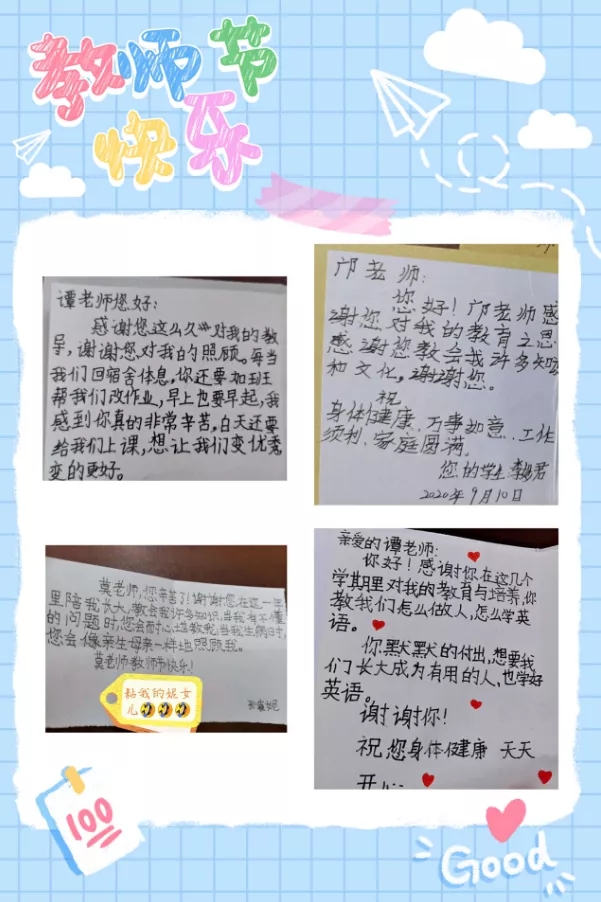 教师节
快乐
谭老师您好:
感谢您这么久对我的教
导,谢谢您对我的照顾。每当
我们回宿舍体息,你还要加班
帮我们改作业,早上也要早起,我
感到你真的非常辛苦,白天还要
给我们上课,想让我们变优秀
变的更好。
邝老师:
您好!邝老师感
谢您对我的教育之恩
感谢您教会我许多知识
和文化。谢谢您。
祝
身体健康、万事如意、工作
须利、家庭圆满。
您的学生
2020年9月10日
莫老师,您辛苦了!谢谢您在这一年
里陪我长大,教会我许多知识,当我有不懂
的问题时,您会耐心地教我,当我生病时,
您会像亲生母亲一样地照顾我。
莫老师教师节快乐!
黏我的妮女
儿🤣🤣🤣
亲爱的谭老师:
你好!感谢你在这几个
学期里对我的教育与培养,你
教我们怎么做人,怎么学英
语。
你默默的付出,想要我
们长大成为有用的人、也学好
英语。
谢谢你!
祝您身体健康 天天
开心
100
Good